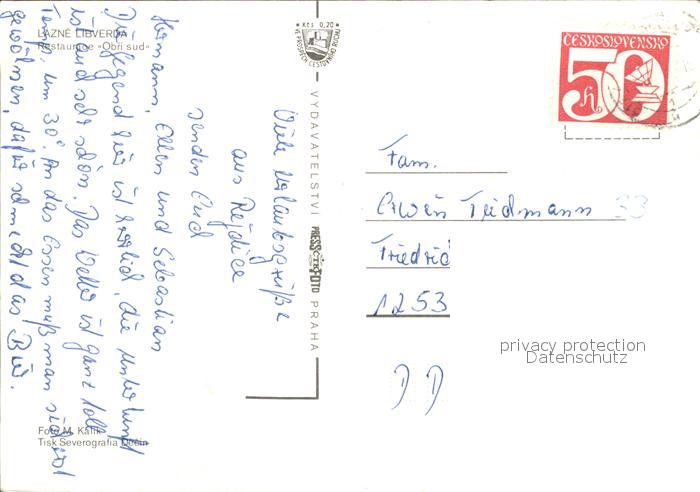 LÁZNĚ LIBVERDA
Restaurace »Obří sud«
Kčs 0,20
VE PROSPĚCH CESTOVNÍHO RUCHU
ČESKOSLOVENSKO
50 h
Viele Urlaubsgrüße
aus Rejdice
senden Euch
Hermann, Ellen und Sebastian
Die Gegend hier ist herrlich, die Unterkunft
ist auch sehr schön. Das Wetter ist ganz toll
Temp. um 30°. An das Essen muß man sich erst
gewöhnen, dafür schmeckt das Bier.
Fam.
Erwin Tiedmann 33
Friedrid
1253
DD
VYDAVATELSTVÍ PRESSFOTO PRAHA
Foto M. Kafík
Tisk Severografia Děčín
privacy protection
Datenschutz